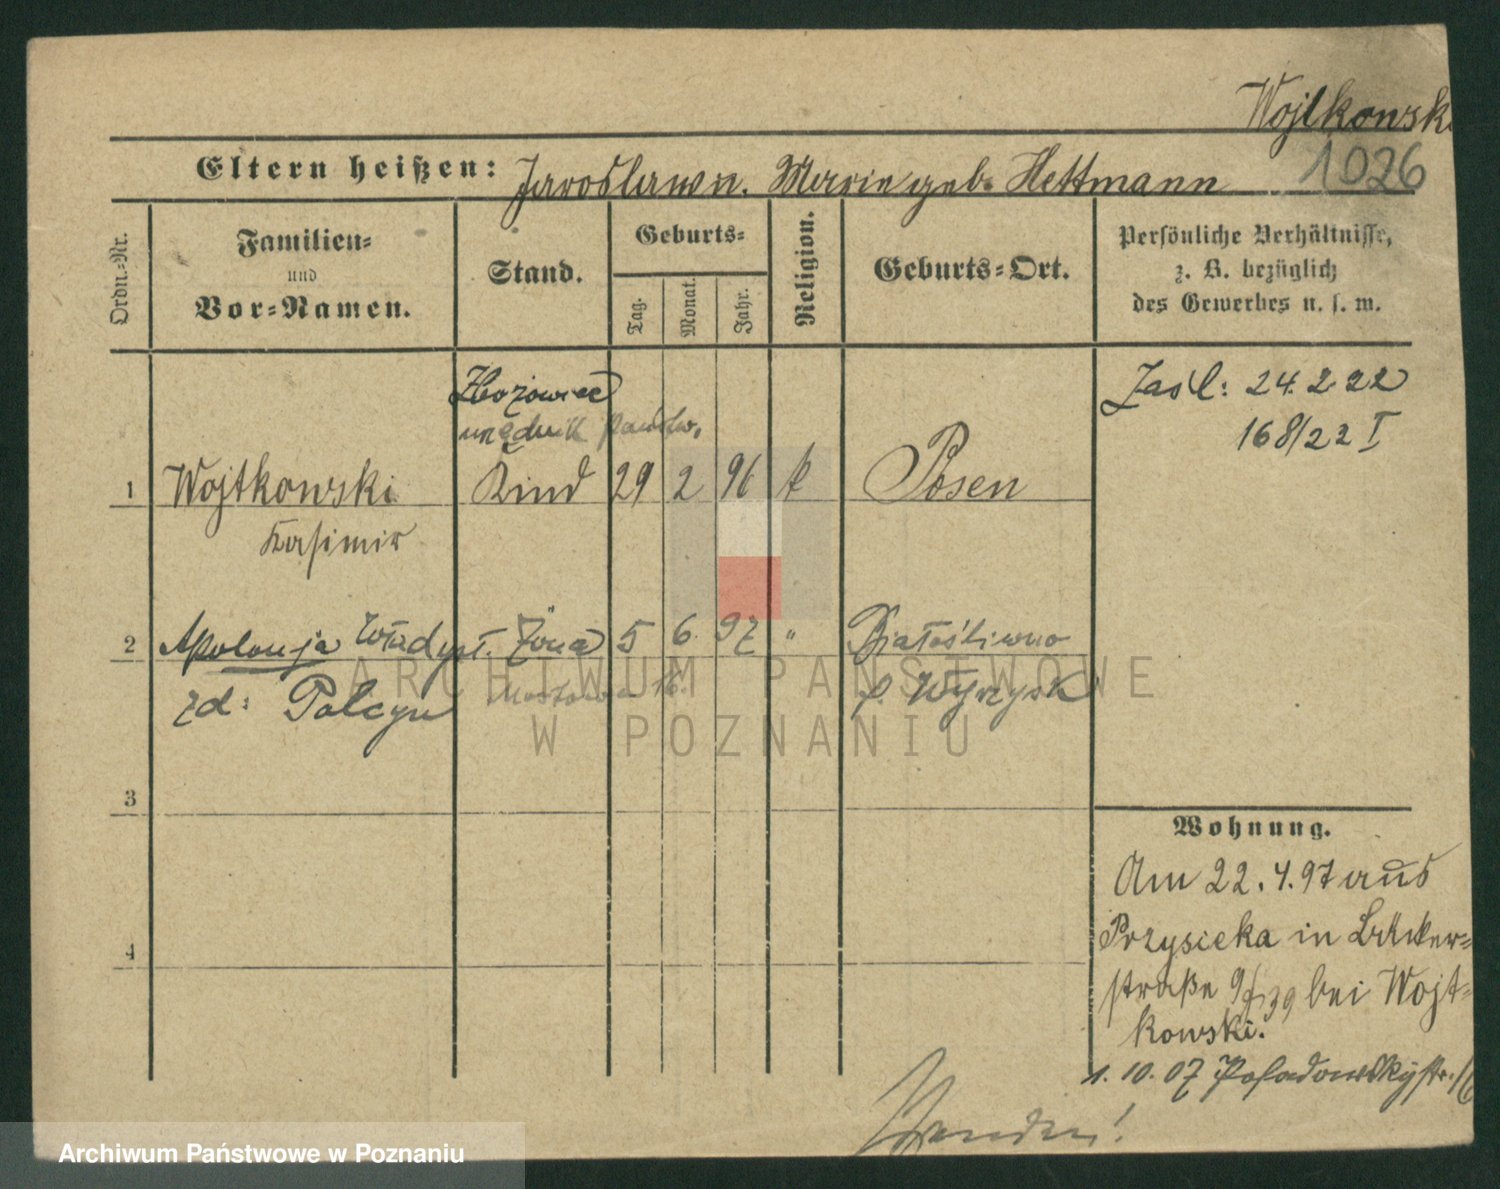 Wojtkowski
1026
Eltern heißen: Jaroslaw u. Marie geb. Hettmann
Ordn.-Nr.
Familien-
und
Vor-Namen.
Stand.
Geburts-
Tag.
Monat.
Jahr.
Religion.
Geburts-Ort.
Persönliche Verhältnisse,
z. B. bezüglich
des Gewerbes u. s. w.
Zbożowiec
urzędnik państw.
Zaśl: 24.2.22
168/22 I
1 Wojtkowski Kind 29 2 96 k Posen
Kasimir
2 Apolonja Władysł. Żona 5 6. 97 " Białośliwno
zd: Polcyn Mostowa 16. p. Wyrzysk
3
Wohnung.
Am 22.4.97 aus
4
Przysieka in Bäcker-
straße 9/ 39 bei Wojt-
kowski.
1.10.07 Posadowskystr.
Wenden!
ARCHIWUM PAŃSTWOWE
W POZNANIU
Archiwum Państwowe w Poznaniu